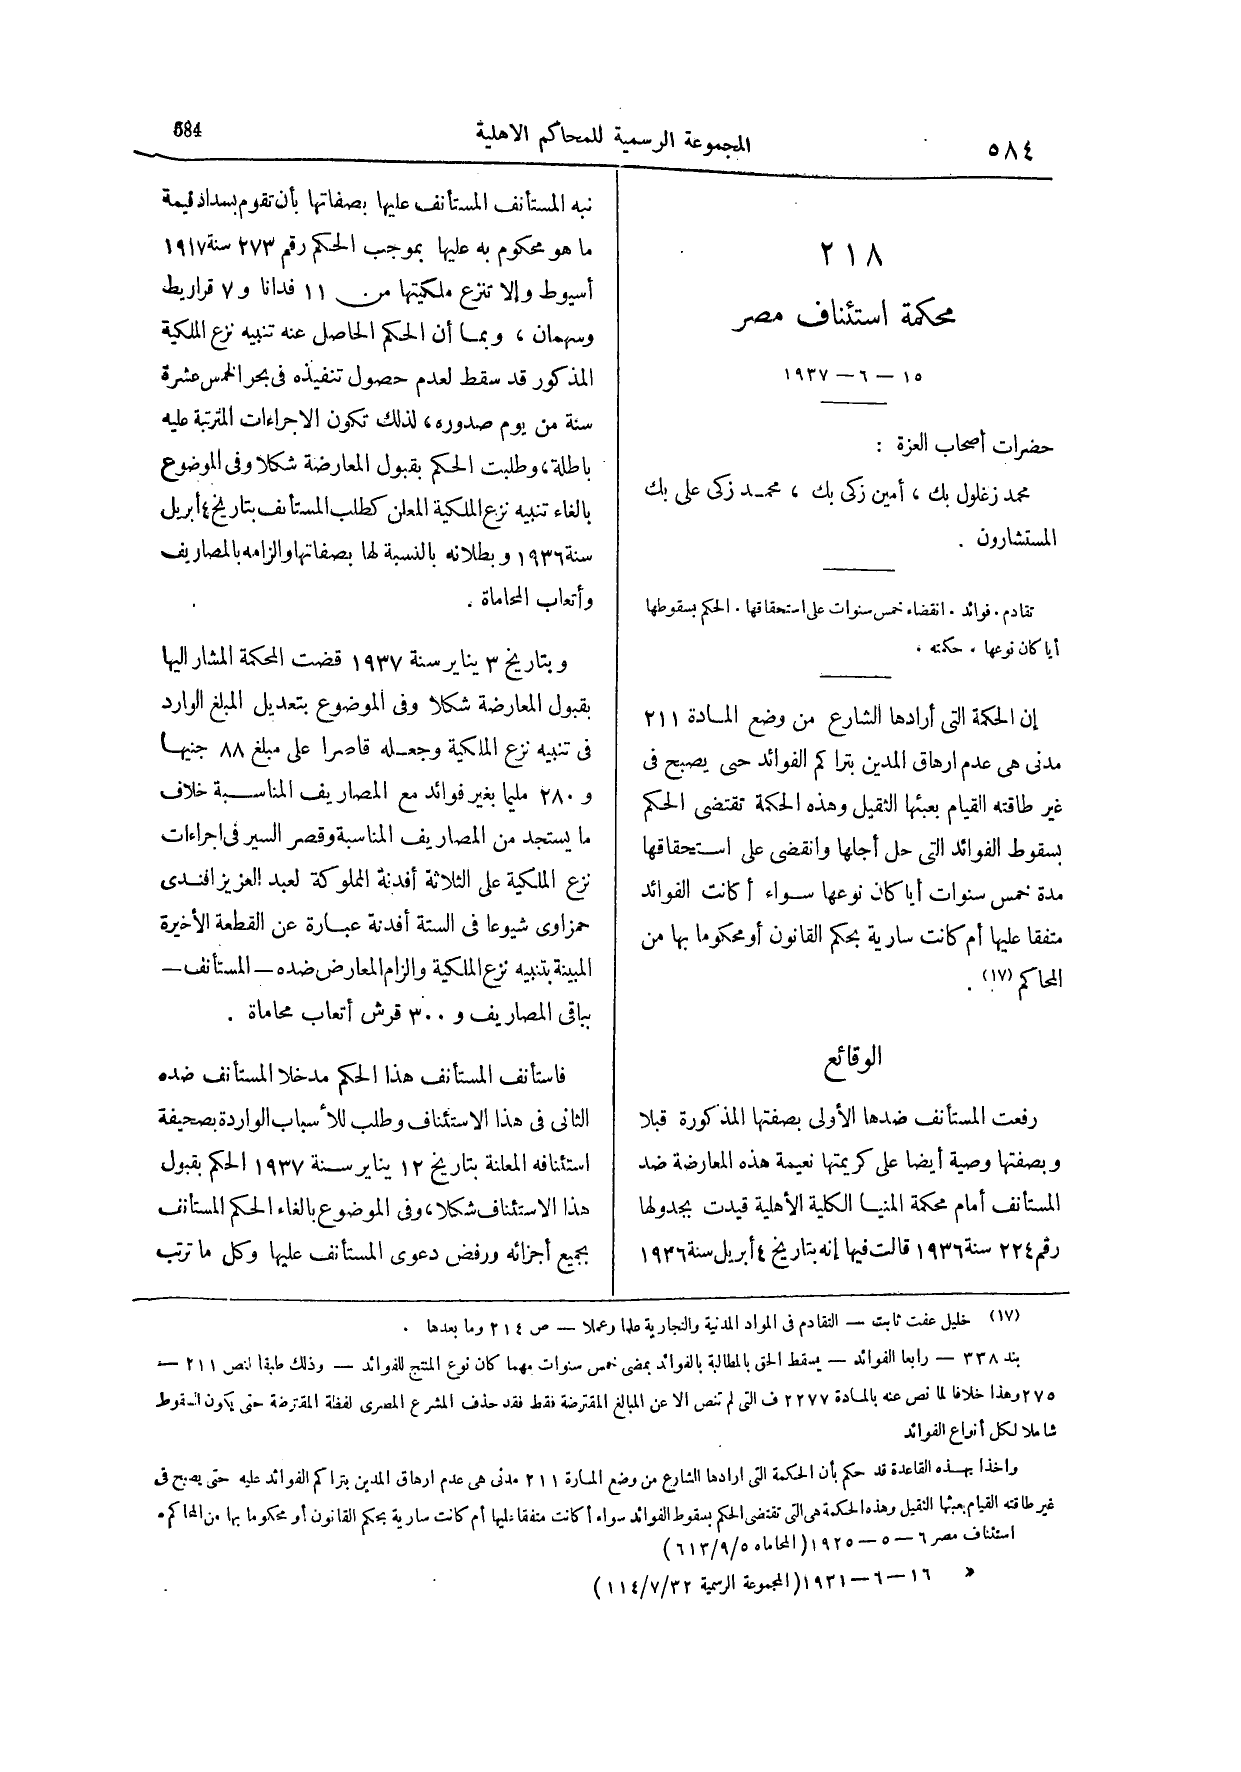 ٥٨٤
المجموعة الرسمية للمحاكم الاهلية
584
٢١٨
محكمة استئناف مصر
١٥ — ٦ — ١٩٣٧
حضرات أصحاب العزة :
محمد زغلول بك ، أمين زكى بك ، محمد زكى على بك
المستشارون .
تقادم . فوائد . انقضاء خمس سنوات على استحقاقها . الحكم بسقوطها
أيا كان نوعها . حكمته .
إن الحكمة التى أرادها الشارع من وضع المادة ٢١١
مدنى هى عدم ارهاق المدين بتراكم الفوائد حتى يصبح فى
غير طاقته القيام بعبئها الثقيل وهذه الحكمة تقتضى الحكم
بسقوط الفوائد التى حل أجلها وانقضى على استحقاقها
مدة خمس سنوات أيا كان نوعها سواء أكانت الفوائد
متفقا عليها أم كانت سارية بحكم القانون أو محكوما بها من
المحاكم (١٧) .
الوقائع
رفعت المستأنف ضدها الأولى بصفتها المذكورة قبلا
وبصفتها وصية أيضا على كريمتها نعيمة هذه المعارضة ضد
المستأنف أمام محكمة المنيا الكلية الأهلية قيدت بجدولها
رقم ٢٢٤ سنة ١٩٣٦ قالت فيها إنه بتاريخ ٤ أبريل سنة ١٩٣٦
نبه المستأنف المستأنف عليها بصفاتها بأن تقوم بسداد قيمة
ما هو محكوم به عليها بموجب الحكم رقم ٢٧٣ سنة ١٩١٧
أسيوط وإلا تنزع ملكيتها من ١١ فدانا و ٧ قراريط
وسهمان ، وبما أن الحكم الحاصل عنه تنبيه نزع الملكية
المذكور قد سقط لعدم حصول تنفيذه فى بحر الخمس عشرة
سنة من يوم صدوره ، لذلك تكون الاجراءات المترتبة عليه
باطلة ، وطلبت الحكم بقبول المعارضة شكلا وفى الموضوع
بالغاء تنبيه نزع الملكية المعلن كطلب المستأنف بتاريخ ٤ أبريل
سنة ١٩٣٦ وبطلانه بالنسبة لها بصفاتها والزامه بالمصاريف
وأتعاب المحاماة .
وبتاريخ ٣ يناير سنة ١٩٣٧ قضت المحكمة المشار اليها
بقبول المعارضة شكلا وفى الموضوع بتعديل المبلغ الوارد
فى تنبيه نزع الملكية وجعله قاصرا على مبلغ ٨٨ جنيها
و ٢٨٠ مليما بغير فوائد مع المصاريف المناسبة خلاف
ما يستجد من المصاريف المناسبة وقصر السير فى اجراءات
نزع الملكية على الثلاثة أفدنة المملوكة لعبد العزيز افندى
حمزاوى شيوعا فى الستة أفدنة عبارة عن القطعة الأخيرة
المبينة بتنبيه نزع الملكية والزام المعارض ضده — المستأنف —
بباقى المصاريف و ٣٠٠ قرش أتعاب محاماة .
فاستأنف المستأنف هذا الحكم مدخلا المستأنف ضده
الثانى فى هذا الاستئناف وطلب للأسباب الواردة بصحيفة
استئنافه المعلنة بتاريخ ١٢ يناير سنة ١٩٣٧ الحكم بقبول
هذا الاستئناف شكلا ، وفى الموضوع بالغاء الحكم المستأنف
بجميع أجزائه ورفض دعوى المستأنف عليها وكل ما ترتب
(١٧) خليل عفت ثابت — التقادم فى المواد المدنية والتجارية علما وعملا — ص ٢١٤ وما بعدها .
بند ٣٣٨ — رابعا الفوائد — يسقط الحق بالمطالبة بالفوائد بمضى خمس سنوات مهما كان نوع المنتج للفوائد — وذلك طبقا لنص ٢١١ —
٢٧٥ وهذا خلافا لما نص عنه بالمادة ٢٢٧٧ ف التى لم تنص الا عن المبالغ المقترضة فقط فقد حذف المشرع المصرى لفظة المقترضة حتى يكون السقوط
شاملا لكل أنواع الفوائد
واخذا بهذه القاعدة قد حكم بأن الحكمة التى ارادها الشارع من وضع المارة ٢١١ مدنى هى عدم ارهاق المدين بتراكم الفوائد عليه حتى يصبح فى
غير طاقته القيام بعبئها الثقيل وهذه الحكمة هى التى تقتضى الحكم بسقوط الفوائد سواء أكانت متفقا عليها أم كانت سارية بحكم القانون أو محكوما بها من المحاكم .
استئناف مصر ٦ — ٥ — ١٩٢٥ ( المحاماه ٦١٣/٩/٥ )
» ١٦ — ٦ — ١٩٣١ ( المجموعة الرسمية ١١٤/٧/٣٢ )